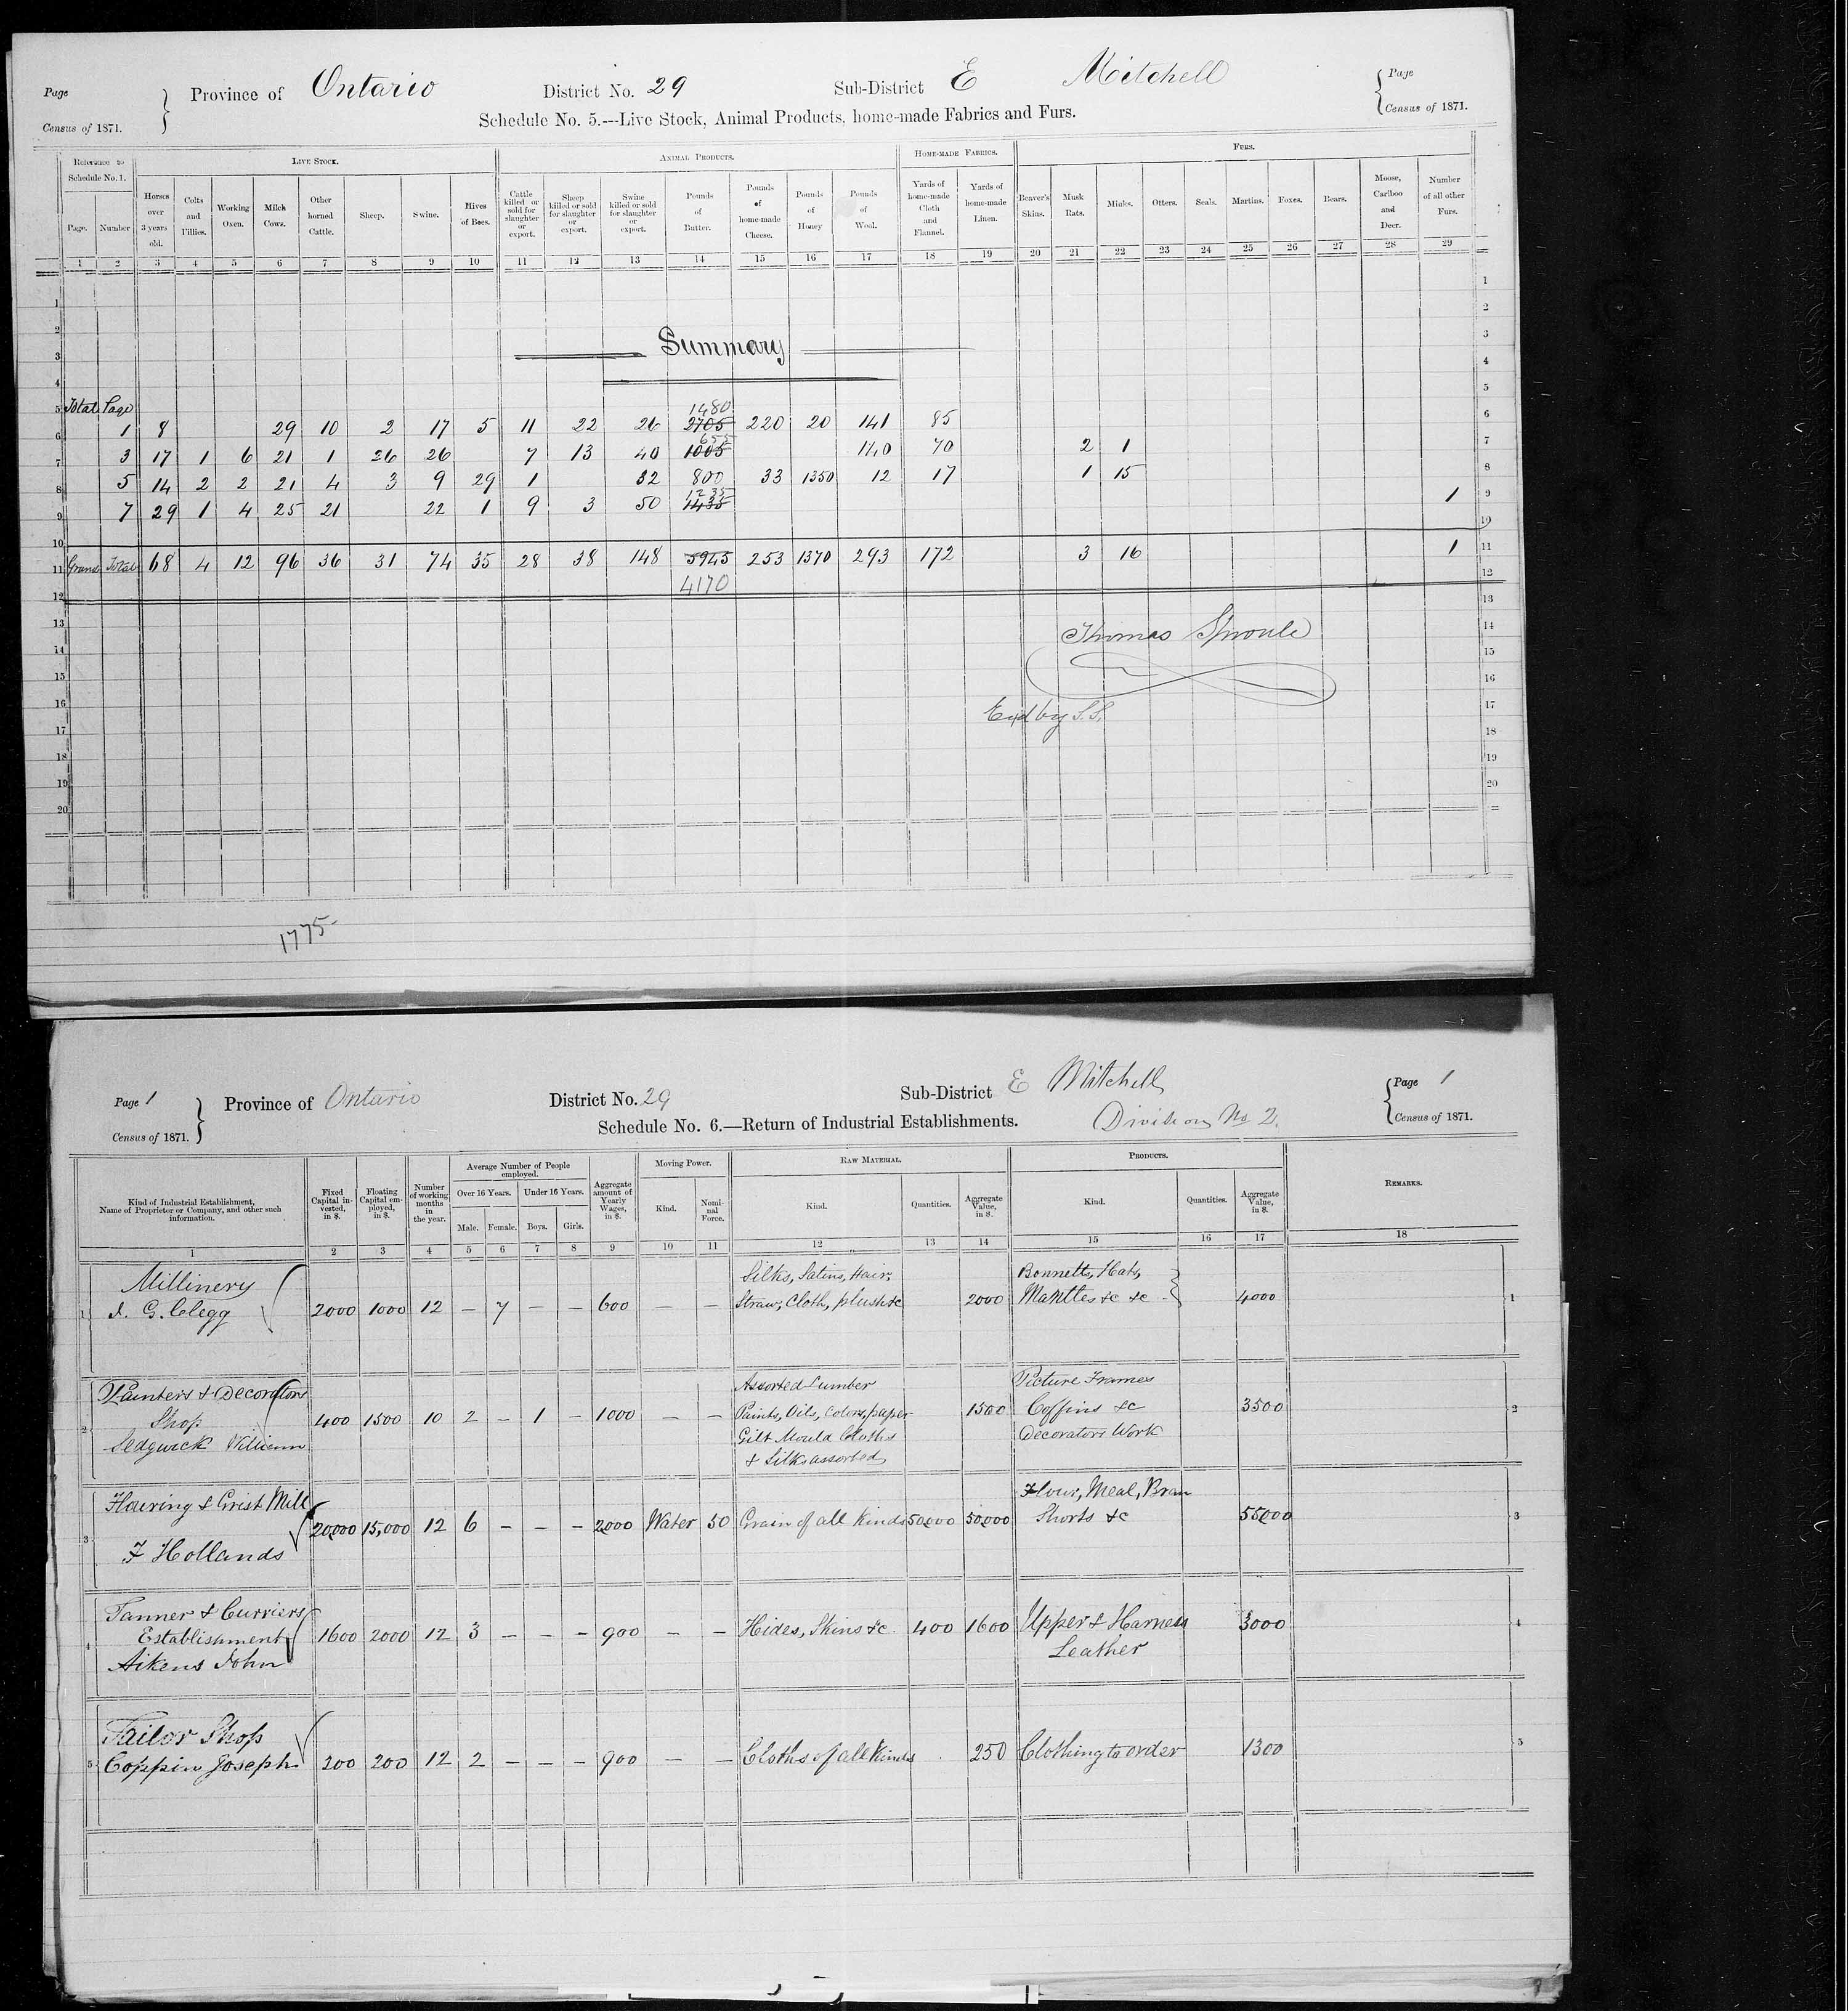 Page
Census of 1871.
Province of Ontario District No. 29 Sub-District E Mitchell
Page
Census of 1871.
Schedule No. 5.---Live Stock, Animal Products, home-made Fabrics and Furs.
Reference to Schedule No. 1. LIVE STOCK. ANIMAL PRODUCTS. HOME-MADE FABRICS. FURS.
Page. Number Horses over 3 years old. Colts and Fillies. Working Oxen. Milch Cows. Other horned Cattle. Sheep. Swine. Hives of Bees. Cattle killed or sold for slaughter or export. Sheep killed or sold for slaughter or export. Swine killed or sold for slaughter or export. Pounds of Butter. Pounds of home-made Cheese. Pounds of Honey Pounds of Wool. Yards of home-made Cloth and Flannel. Yards of home-made Linen. Beaver's Skins. Musk Rats. Minks. Otters. Seals. Martins. Foxes. Bears. Moose, Cariboo and Deer. Number of all other Furs.
1 2 3 4 5 6 7 8 9 10 11 12 13 14 15 16 17 18 19 20 21 22 23 24 25 26 27 28 29
1 1
2 2
3 Summary 3
4 4
5 Total Page 5
1480
6 1 8 29 10 2 17 5 11 22 26 2705 220 20 141 85 6
655
7 3 17 1 6 21 1 26 26 7 13 40 1005 140 70 2 1 7
8 5 14 2 2 21 4 3 9 29 1 32 800 33 1350 12 17 1 15 8
1235
9 7 29 1 4 25 21 22 1 9 3 50 1435 1 9
10 10
11 Grand Total 68 4 12 96 36 31 74 35 28 38 148 5945 253 1370 293 172 3 16 1 11
12 4170 12
13 13
14 Thomas Sproule 14
15 15
16 16
17 Exd by S.S. 17
18 18
19 19
20 20
1775
Page 1
Census of 1871.
Province of Ontario District No. 29 Sub-District E Mitchell
Page 1
Census of 1871.
Schedule No. 6.—Return of Industrial Establishments. Division No 2.
Kind of Industrial Establishment, Name of Proprietor or Company, and other such information. Fixed Capital invested, in $. Floating Capital employed, in $. Number of working months in the year. Average Number of People employed. Over 16 Years. Under 16 Years. Male. Female. Boys. Girls. Aggregate amount of Yearly Wages, in $. Moving Power. Kind. Nominal Force. RAW MATERIAL. Kind. Quantities. Aggregate Value, in $. PRODUCTS. Kind. Quantities. Aggregate Value, in $. REMARKS.
1 2 3 4 5 6 7 8 9 10 11 12 13 14 15 16 17 18
Millinery Silks, Satins, Hair, Bonnetts, Hats,
1 J. G. Clegg 2000 1000 12 — 7 — — 600 — — Straw, Cloth, plush &c 2000 Manttes &c &c 4000 1
Painters & Decorators Assorted Lumber Picture Frames
2 Shop 400 1500 10 2 — 1 — 1000 — — Paints, Oils, Colors, paper 1500 Coffins &c 3500 2
Sedgwick William Gilt Mould Cloths Decorators Work
& Silks assorted
Flouring & Grist Mill Flour, Meal, Bran
3 20,000 15,000 12 6 — — — 2000 Water 50 Grain of all Kinds 50,000 50,000 Shorts &c 55,000 3
F Hollands
Tanner & Curriers
4 Establishment 1600 2000 12 3 — — — 900 — — Hides, Skins &c. 400 1600 Upper & Harness 3000 4
Aikens John Leather
Tailor Shop
5 Coppin Joseph 300 200 12 2 — — — 900 — — Cloths of all Kinds 250 Clothing to order 1300 5